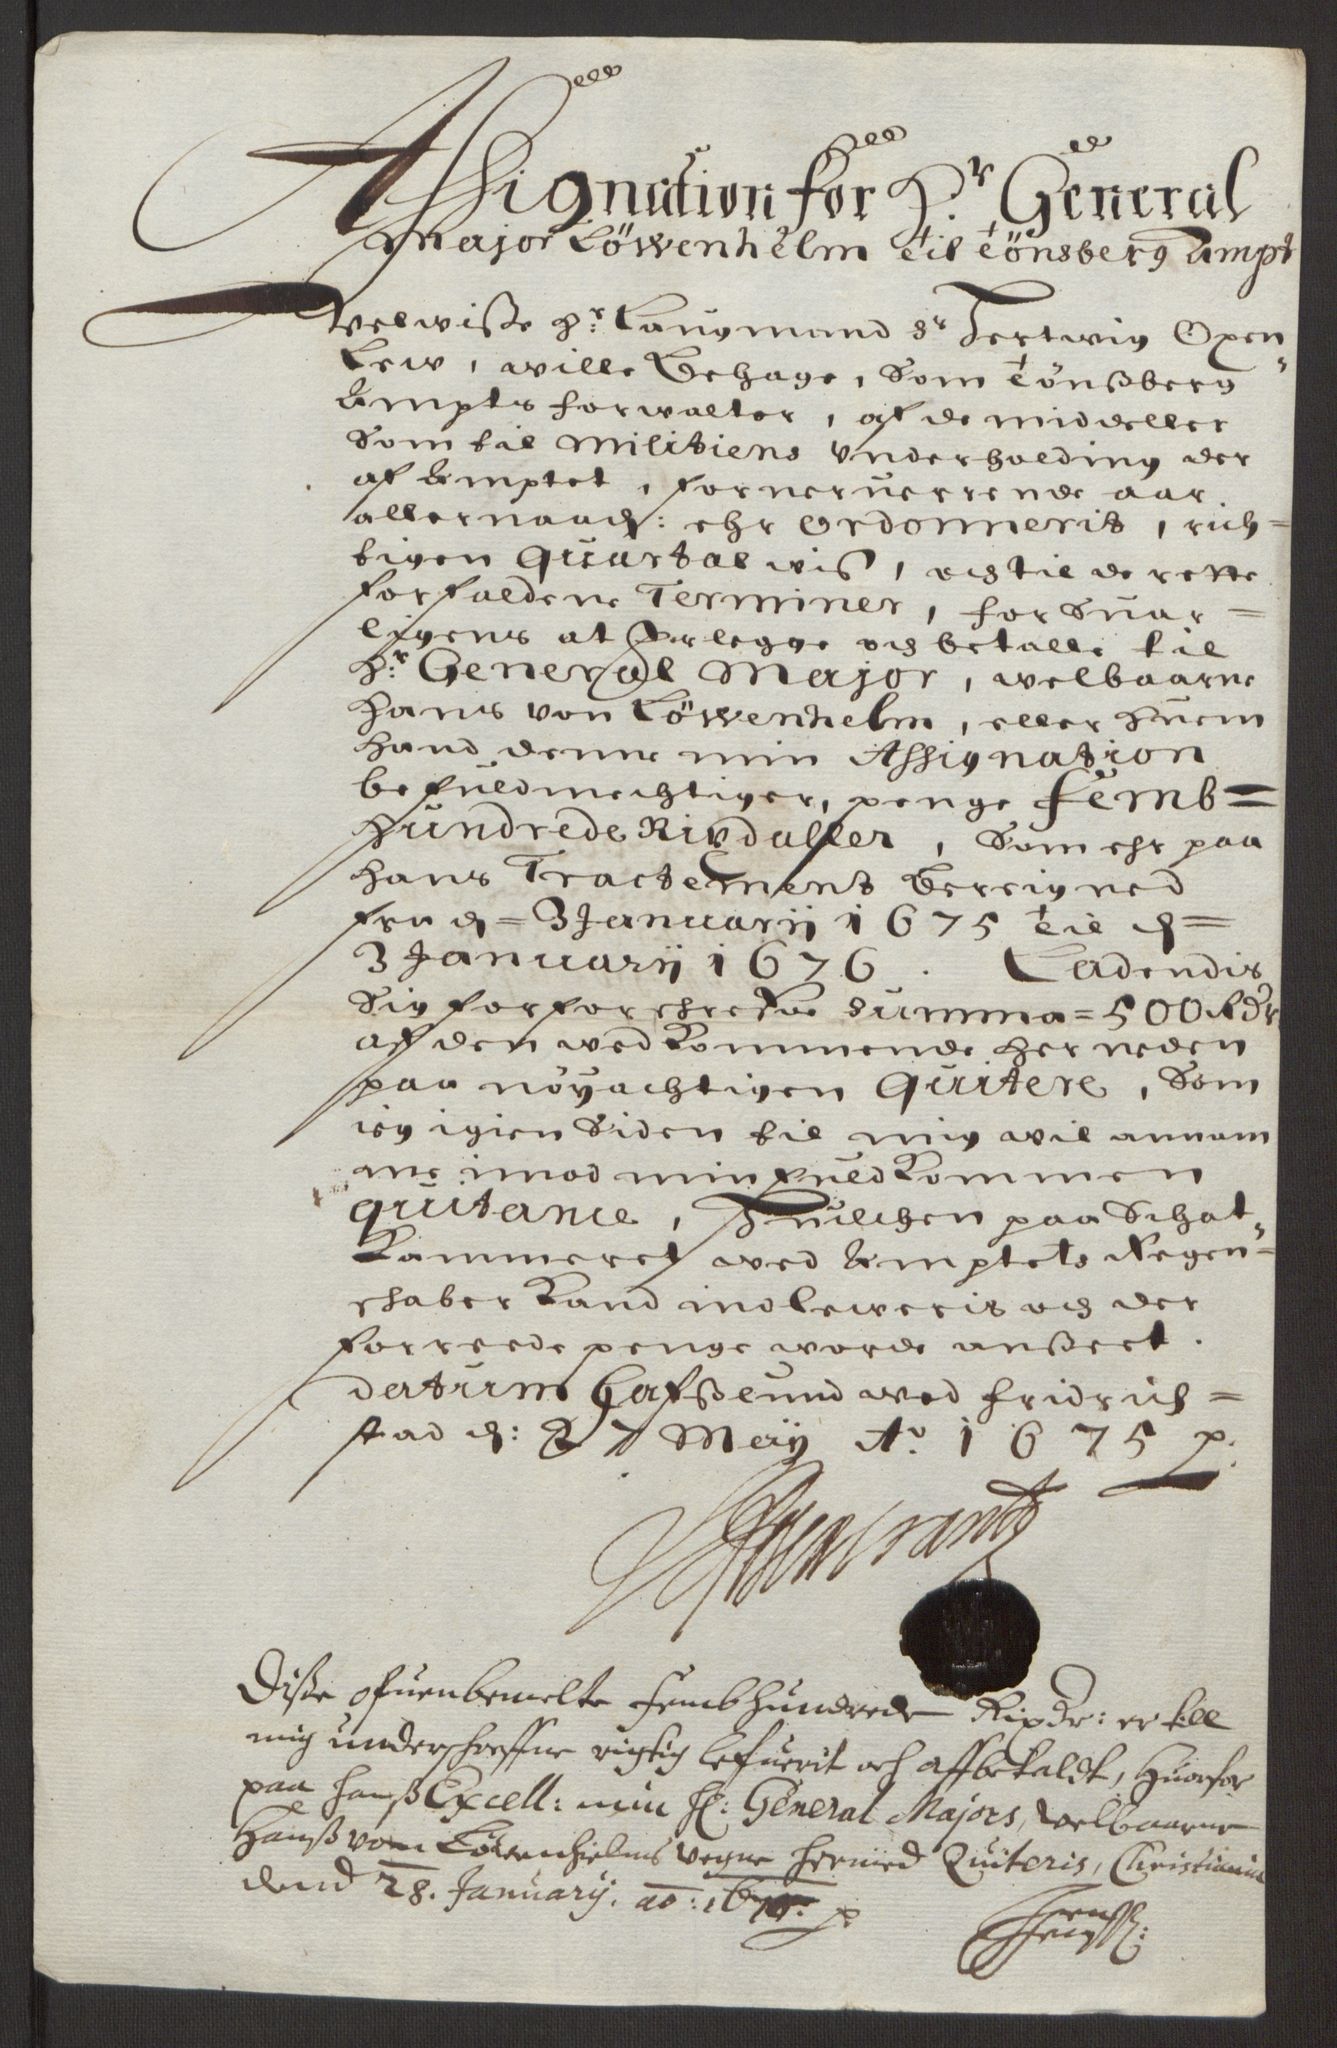 Assignation for Hr General
Major Löwenhelm til Tönsberg Ampt
Velwisse Hr: Laugmand Sr Hertwig Oxen
Lew, wille Behage, Som Tönssberg
Ampts forwalter, af de middeller
Som til Militiens Underholding der
af Amptet, for neruerrende aar
allernaad: ehr Ordonnerit, rich=
tigen Quartal wiss, og til de rette
forfaldene Terminer, for Suar=
ligens at Erlegge og betalle til
Hr: General Major, welbaarne
Hans von Löwenhelm, eller huem
hand denne min Assignation
befuldmechtiger, penge femb=
hundrede Rixdaller, Som ehr paa
hans Tractement Bereigned
fra d= 3 January 1675 til d=
3 January 1676. Ladendis
Sig for forschrefne Summa = 500 Rdr
af den wedkommende her neden
paa nöyachtigen Quitere, Som
ieg igien Siden til mig wil annam
me imod min fuldkommen
quitance, Huilchen paa Schat
Kammeret wed Amptets Regen=
schaber Kand indleweris og der
forreede penge worde ansseet.
Datum Hafsslund wed Fridrich=
stad d: 27 May Ao 1675 p.
Disse ofuenbemelte fembhundrede Rixdr: er till
mig underschreffne rigtig lefuerit och affbetaldt, Huorfor
paa hanss Excell: min Hr: General Majors, velbaarne
Hanss von Löwenhielms vegne hermed Quiteris, Christiania
dend 28. January. ao: 1676. p